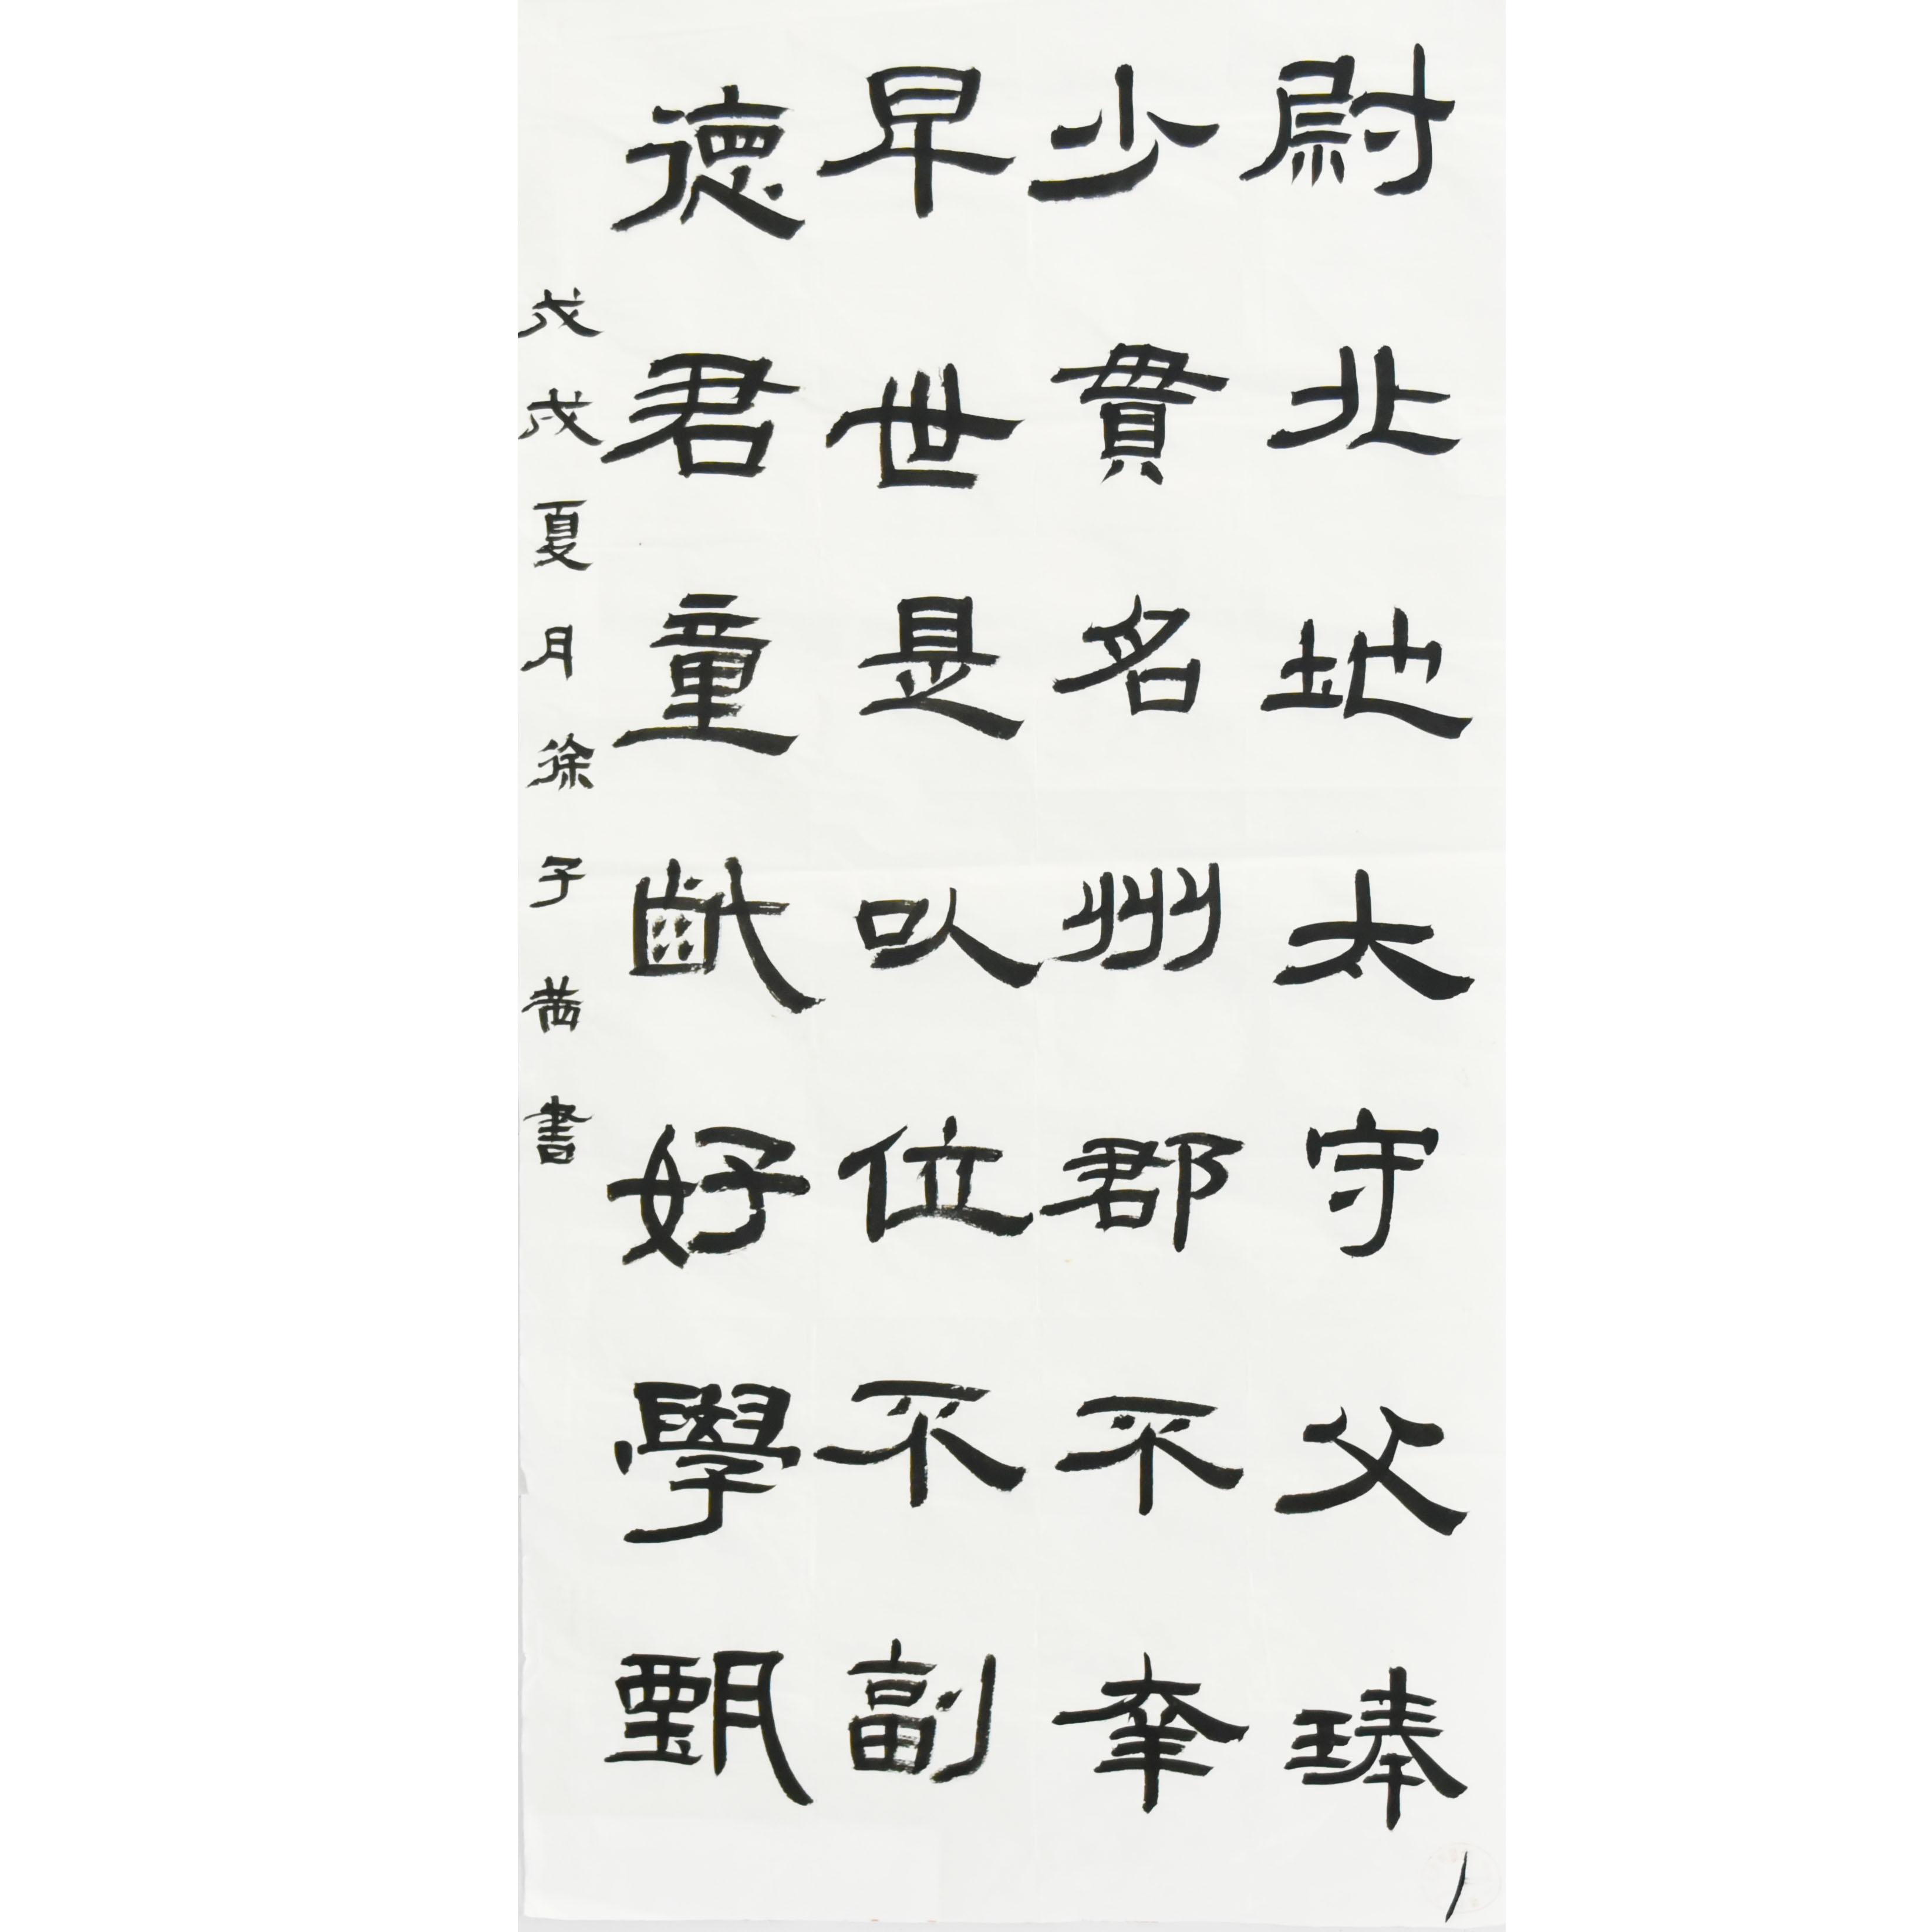 尉北地太守父琫
少貫名州郡不幸
早世是以位不副
德君童齔好學甄
戊戌夏月徐子茜書